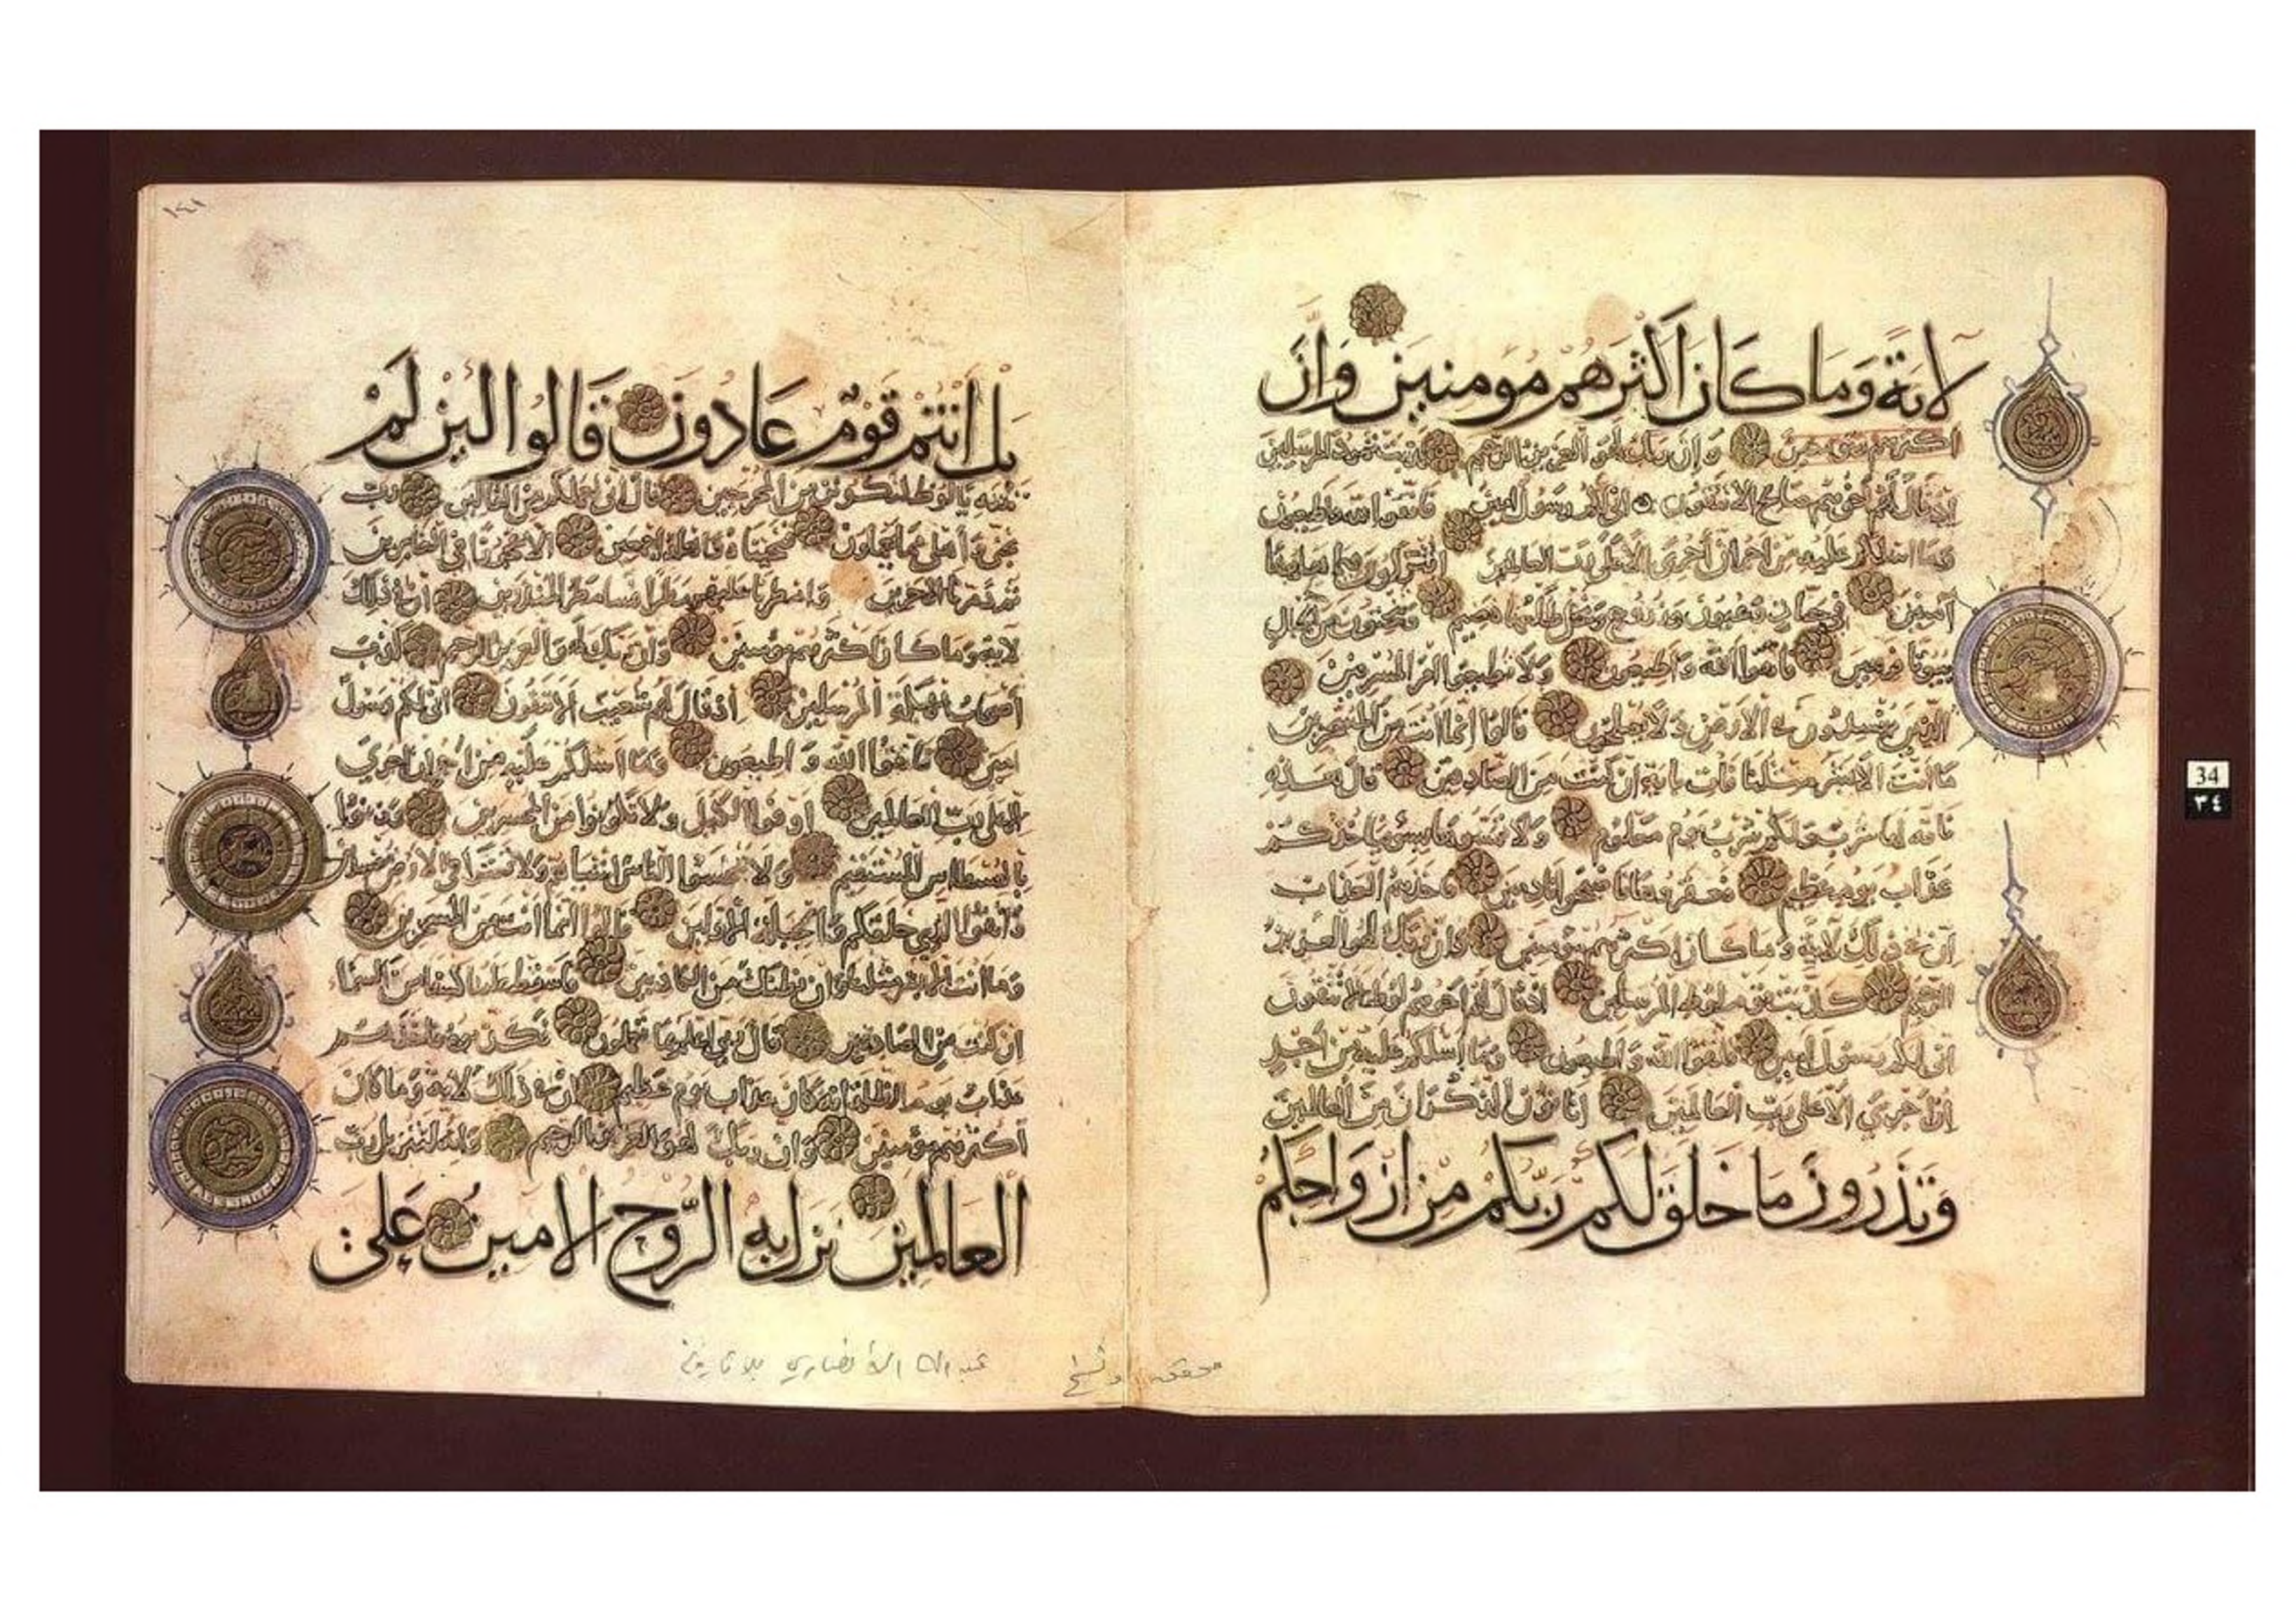 لاية وما كان اكثرهم مومنين وان
وان ربك لهو العزيز الرحيم كذبت ثمود المرسلين
اذ قال لهم اخوهم صالح الا تتقون اني لكم رسول امين فاتقوا الله واطيعون
وما اسئلكم عليه من اجر ان اجري الا على رب العالمين اتتركون في ما هاهنا
آمنين في جنات وعيون وزروع ونخل طلعها هضيم وتنحتون من الجبال
بيوتا فرهين فاتقوا الله واطيعون ولا تطيعوا امر المسرفين
الذين يفسدون في الارض ولا يصلحون قالوا انما انت من المسحرين
ما انت الا بشر مثلنا فات باية ان كنت من الصادقين قال هذه
ناقة لها شرب ولكم شرب يوم معلوم ولا تمسوها بسوء فياخذكم
عذاب يوم عظيم فعقروها فاصبحوا نادمين فاخذهم العذاب
ان في ذلك لاية وما كان اكثرهم مؤمنين وان ربك لهو العزيز
الرحيم كذبت قوم لوط المرسلين اذ قال لهم اخوهم لوط الا تتقون
اني لكم رسول امين فاتقوا الله واطيعون وما اسئلكم عليه من اجر
ان اجري الا على رب العالمين اتاتون الذكران من العالمين
وتذرون ما خلق لكم ربكم من ازواجكم
34
٣٤
بل انتم قوم عادون قالوا لئن لم
تنته يا لوط لتكونن من المخرجين قال اني لعملكم من القالين رب
نجني واهلي مما يعملون فنجيناه واهله اجمعين الا عجوزا في الغابرين
ثم دمرنا الاخرين وامطرنا عليهم مطرا فساء مطر المنذرين ان في ذلك
لاية وما كان اكثرهم مؤمنين وان ربك لهو العزيز الرحيم كذب
اصحاب الايكة المرسلين اذ قال لهم شعيب الا تتقون اني لكم رسول
امين فاتقوا الله واطيعون وما اسئلكم عليه من اجر ان اجري
الا على رب العالمين اوفوا الكيل ولا تكونوا من المخسرين وزنوا
بالقسطاس المستقيم ولا تبخسوا الناس اشياءهم ولا تعثوا في الارض مفسدين
واتقوا الذي خلقكم والجبلة الاولين قالوا انما انت من المسحرين
وما انت الا بشر مثلنا وان نظنك لمن الكاذبين فاسقط علينا كسفا من السماء
ان كنت من الصادقين قال ربي اعلم بما تعملون فكذبوه فاخذهم
عذاب يوم الظلة انه كان عذاب يوم عظيم ان في ذلك لاية وما كان
اكثرهم مؤمنين وان ربك لهو العزيز الرحيم وانه لتنزيل رب
العالمين نزل به الروح الامين على
عبد الله الأنصاري بلا تاريخ